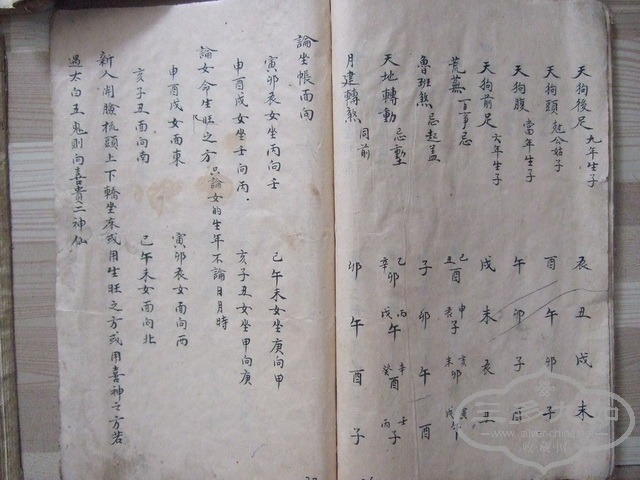 天狗後足 九年生子 辰 丑 戌 未
天狗頭 尅公姑子 酉 午 卯 子
天狗腹 當年生子 午 卯 子 酉
天狗前足 六年生子 戌 未 辰 丑
荒蕪 百事忌
魯班煞 忌起盖 子 卯 午 酉
天地轉動 忌動塹 乙卯 辛卯 丙午 戊午 辛酉 癸酉 壬子 丙子
月建轉煞 同前 卯 午 酉 子
論坐帳面向
寅卯辰女坐丙向壬 己午未女坐庚向甲
申酉戌女坐壬向丙 亥子丑女坐甲向庚
論女命生旺之方 只論女的生年不論日月時
申酉戌女面東 寅卯辰女面向西
亥子丑面向南 己午未女面向北
新人開臉梳頭上下轎坐床或用生旺之方或用喜神之方若
遇太白五鬼則向喜貴二神仙